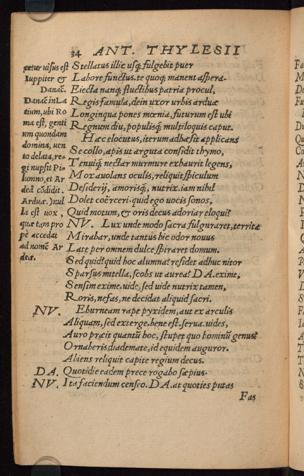 34 ANT. THYLESII
Stellatus illic usq; fulgebit puer
Labore functus. te quoq; manent aspera.
Eiecta nanq; fluctibus patria procul,
Regis famula, dein uxor urbis arduæ
Longinqua pones mœnia, futurum est ubi
Regnum diu, populisq; multiloquis caput.
Hæc elocutus, iterum adhæsit applicans
Se collo, apis ut arguta considit thymo,
Tenuiq; nectar murmure exhaurit legens,
Mox auolans oculis, reliquit spiculum
Desiderij, amorisq; nutrix. iam nihil
Dolet coërceri: quid ego uocis sonos,
Quid motum, & oris decus adoriar eloqui?
NV. Lux unde modo sacra fulgurare, territæ
Mirabar, unde tantus hic odor nouus
Late per omnem dulce spiraret domum.
Sed quid? quid hoc alumna? residet adhuc nitor
Sparsus mitella, scobs ut aurea? DA. exime,
Sensim exime. uide, sed uide nutrix tamen,
Roris, nefas, ne decidat aliquid sacri.
NV. Eburneam rape pyxidem, aut ex arculis
Aliquam, sed exterge. bene est. serua. uides,
Auro præit quantū hoc, stupet quo hominū genus?
Ornaberis diademate, id equidem auguror.
Aliens reliquit capite regium decus.
DA. Quotidie eadem prece rogabo sæpius.
NV. Ita faciendum censeo. DA. at quoties putas
Fas
uisus est
Iuppiter &
Danaë.
Danaë in La
tium, ubi Ro
ma est, genti
um quondam
domina, uen
to delata, re-
gi nupsit Pi-
lomno, et Ar
deā cōdidit.
Ardua.
la est uox,
quæ tam pro
pe accedat
ad nomē Ar
deæ.